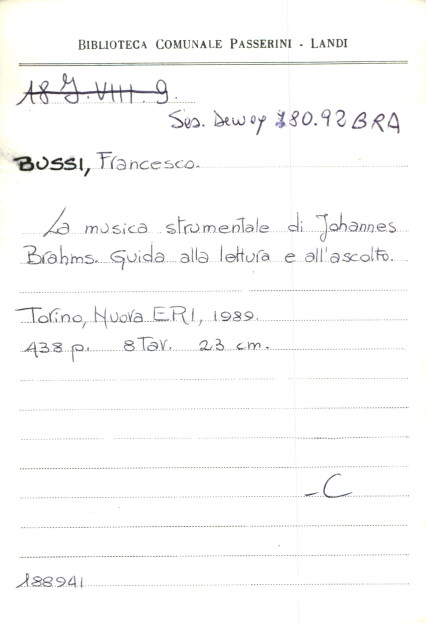 BIBLIOTECA COMUNALE PASSERINI - LANDI
18 G.VIII.9.
Dewey 780.92 BRA
BUSSI, Francesco.
La musica strumentale di Johannes
Brahms. Guida alla lettura e all'ascolto.
Torino, Nuova ERI, 1989.
438 p. 8 Tav. 23 cm.
-C
188941